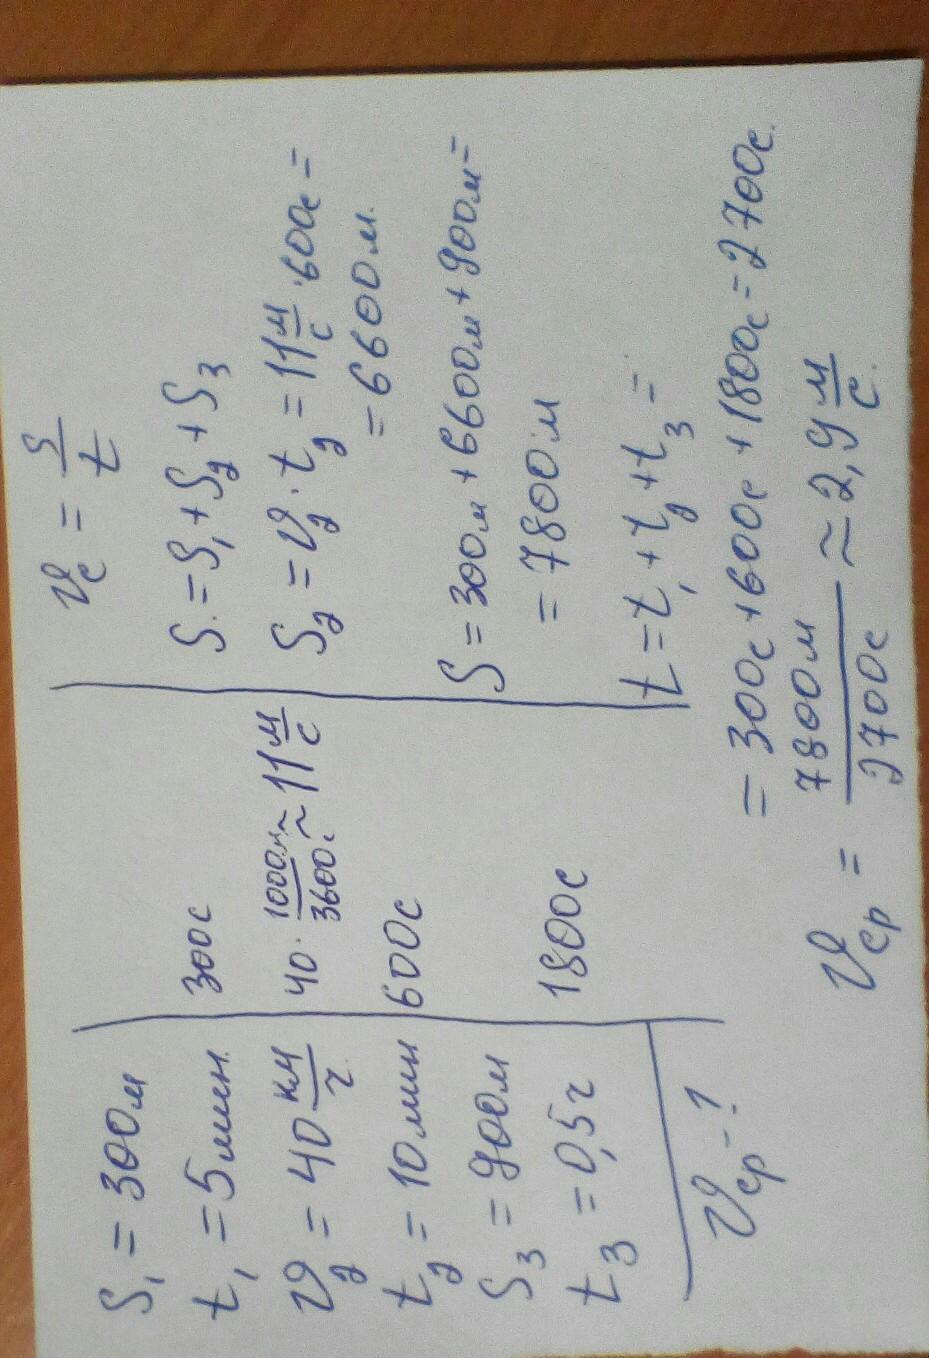 S₁ = 300м
t₁ = 5мин. 300с
υ₂ = 40 км/ч 40 · 1000м/3600с ≈ 11 м/с
t₂ = 10мин 600с
S₃ = 900м
t₃ = 0,5ч 1800с
υср - ?
υс = S/t
S = S₁ + S₂ + S₃
S₂ = υ₂ · t₂ = 11 м/с · 600с =
= 6600м.
S = 300м + 6600м + 900м =
= 7800м
t = t₁ + t₂ + t₃ =
= 300с + 600с + 1800с = 2700с.
υср = 7800м/2700с ≈ 2,9 м/с.